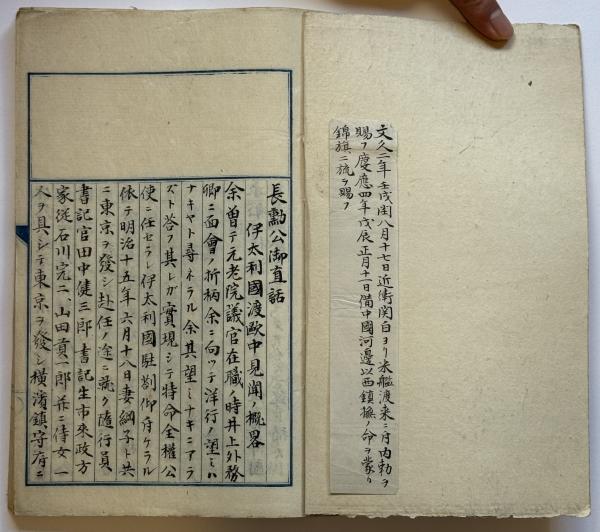 文久二年壬戌閏八月十七日近衛関白ヨリ米艦渡来ニ付内勅ヲ
賜フ慶應四年戊辰正月十一日備中國河邊以西鎮撫ノ命ヲ蒙リ
錦旗二旒ヲ賜フ
長勲公御直話
伊太利國渡歐中見聞ノ概畧
余曽テ元老院議官在職ノ時井上外務
卿ニ面會ノ折柄余ニ向ツテ洋行ノ望ミハ
ナキヤト尋ネラル余其望ミナキニアラ
ズト答フ其レガ實現シテ特命全權公
使ニ任セラレ伊太利國駐劄仰付ケラル
依テ明治十五年六月十八日妻綱子ト共
ニ東京ヲ發シ赴任ノ途ニ就ク隨行員
書記官田中健三郎書記生市來政方
家從石川完二、山田貢一郎並ニ侍女一
人ヲ具シテ東京ヲ發シ横濱鎮守府ニ